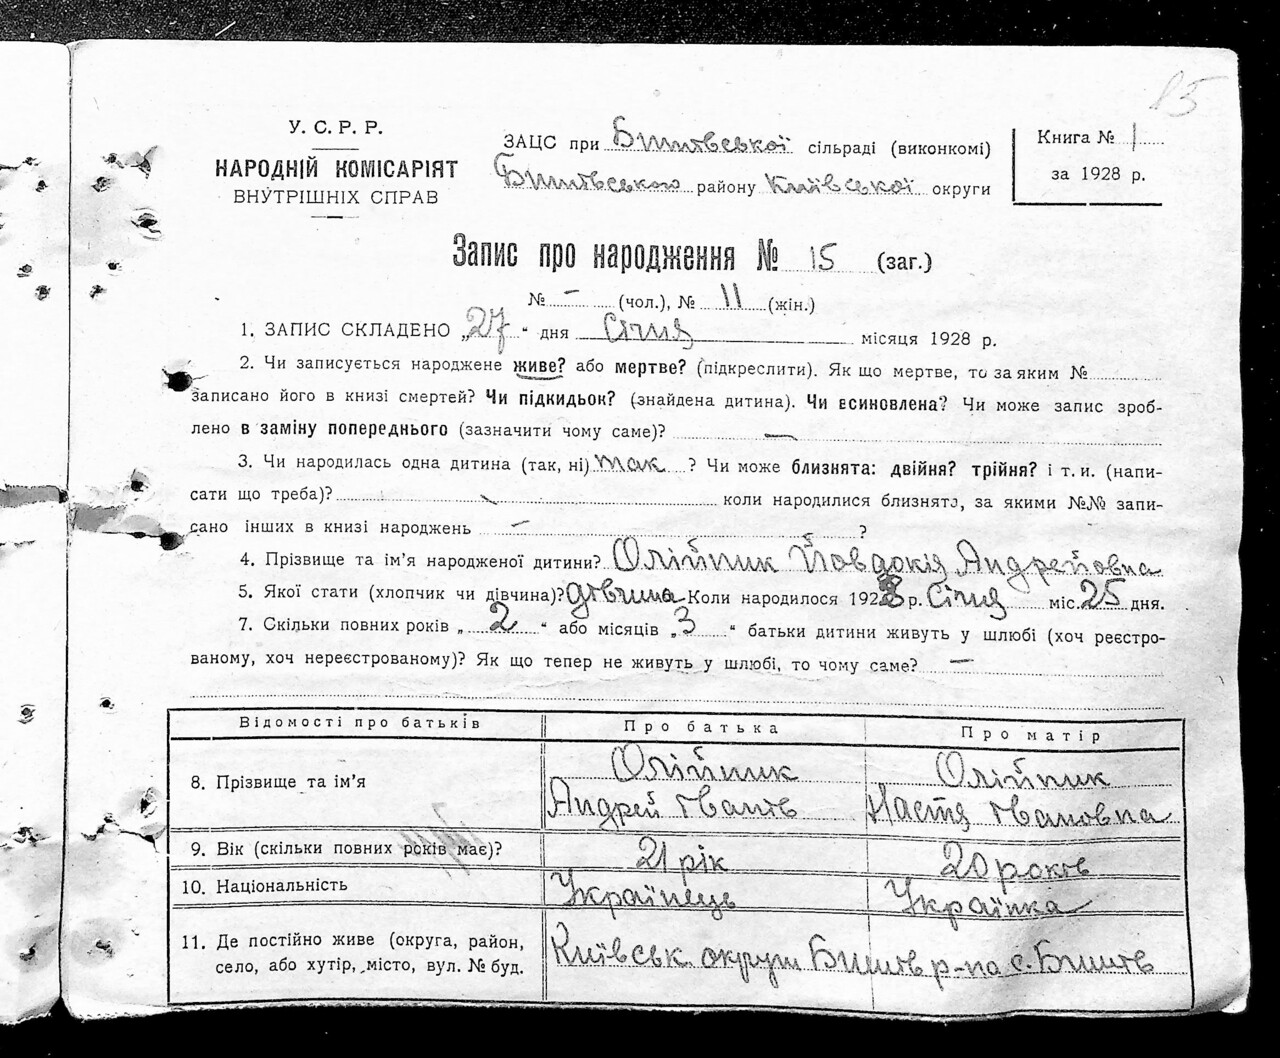 15
У. С. Р. Р.
НАРОДНІЙ КОМІСАРІЯТ
ВНУТРІШНІХ СПРАВ
ЗАЦС при Бишівської сільраді (виконкомі)
Бишівського району Київської округи
Книга № 1
за 1928 р.
Запис про народження № 15 (заг.)
№ - (чол.), № 11 (жін.)
1. ЗАПИС СКЛАДЕНО „27“ дня Січня місяця 1928 р.
2. Чи записується народжене живе? або мертве? (підкреслити). Як що мертве, то за яким №
записано його в книзі смертей? Чи підкидьок? (знайдена дитина). Чи всиновлена? Чи може запис зроб-
лено в заміну попереднього (зазначити чому саме)? —
3. Чи народилась одна дитина (так, ні) так ? Чи може близнята: двійня? трійня? і т. и. (напи-
сати що треба)? коли народилися близнята, за якими №№ запи-
сано інших в книзі народжень — ?
4. Прізвище та ім’я народженої дитини? Олійник Йовдокія Андрейовна
5. Якої стати (хлопчик чи дівчина)? дівчина Коли народилося 1928 р. Січня міс. 25 дня.
7. Скільки повних років „ 2 “ або місяців „ 3 “ батьки дитини живуть у шлюбі (хоч реєстро-
ваному, хоч нереєстрованому)? Як що тепер не живуть у шлюбі, то чому саме? —
Відомості про батьків Про батька Про матір
8. Прізвище та ім’я Олійник Андрей Іванів Олійник Настя Івановна
9. Вік (скільки повних років має)? 21 рік 20 років
10. Національність Українець Українка
11. Де постійно живе (округа, район,
село, або хутір, місто, вул. № буд. Київськ. округи Бишів р-на с. Бишів